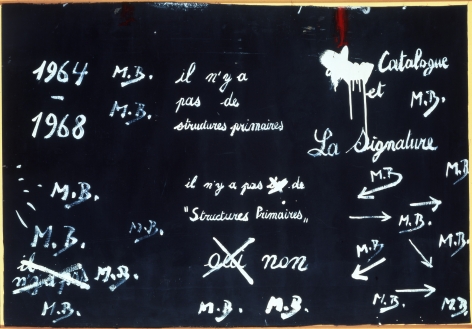 1964
–
1968
M.B.
M.B.
il n'y a
pas de
structures primaires
Catalogue
et
M.B.
La Signature
M.B.
M.B.
M.B.
M.B.
il n'y a pas de
"Structures Primaires"
M.B.
M.B.
M.B.
M.B.
il
n'y a pas
M.B.
M.B.
oui non
M.B.
M.B.
M.B.
M.B.
M.B.